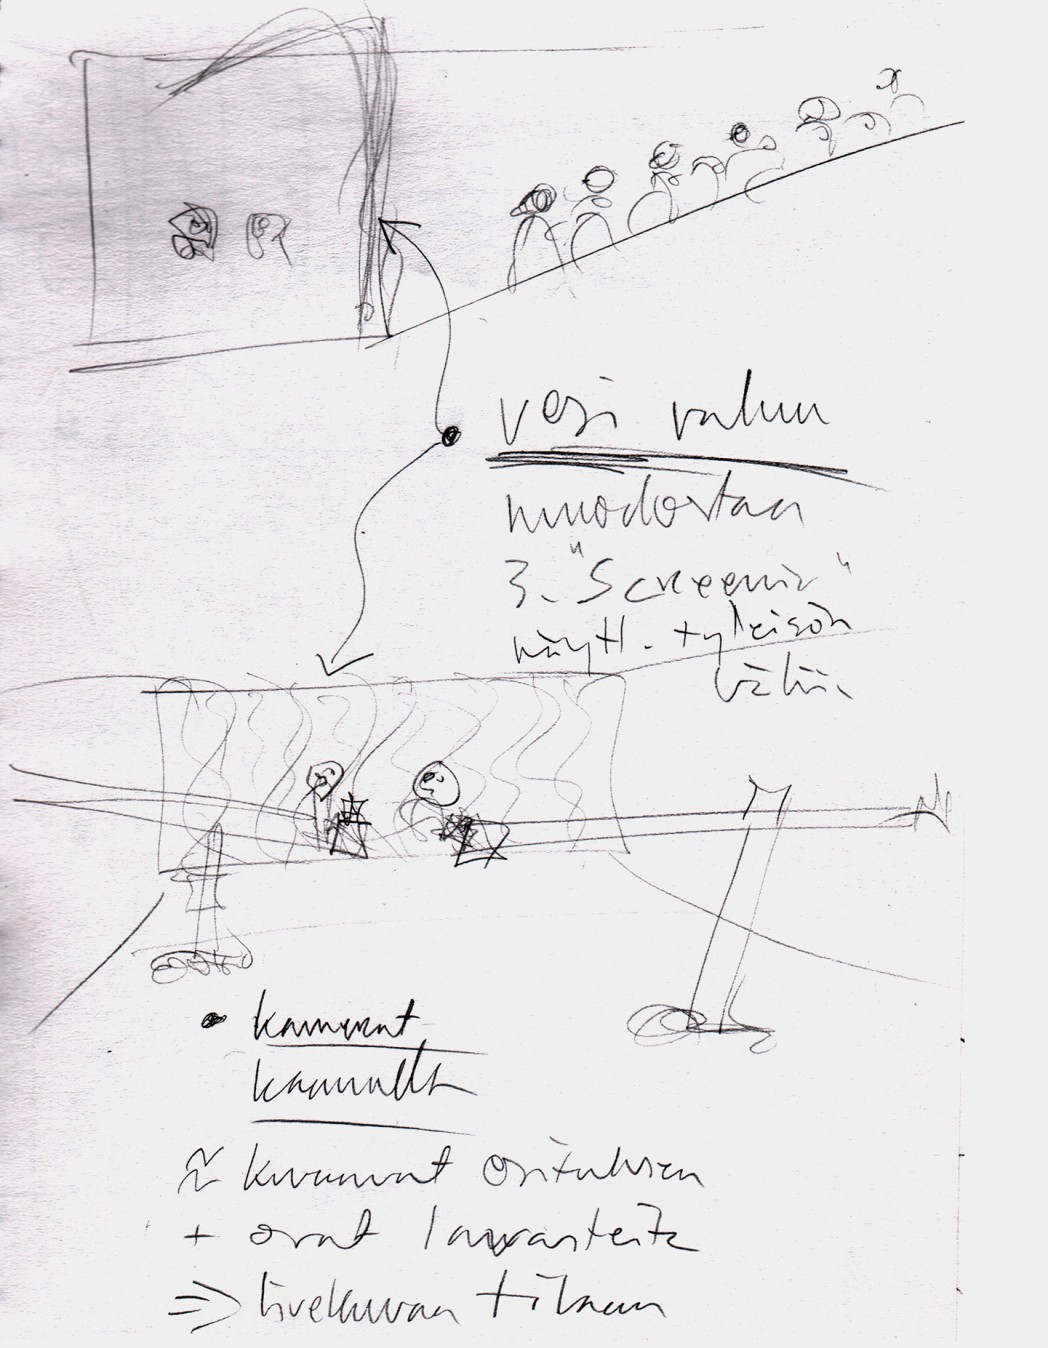 vesi valuu
muodostaa
3. "Screenin"
näytt. + yleisön
väliin
• kamerat
~ kuvaavat esityksen
+ ovat lavasteita
⇒ livekuvaa tilaan